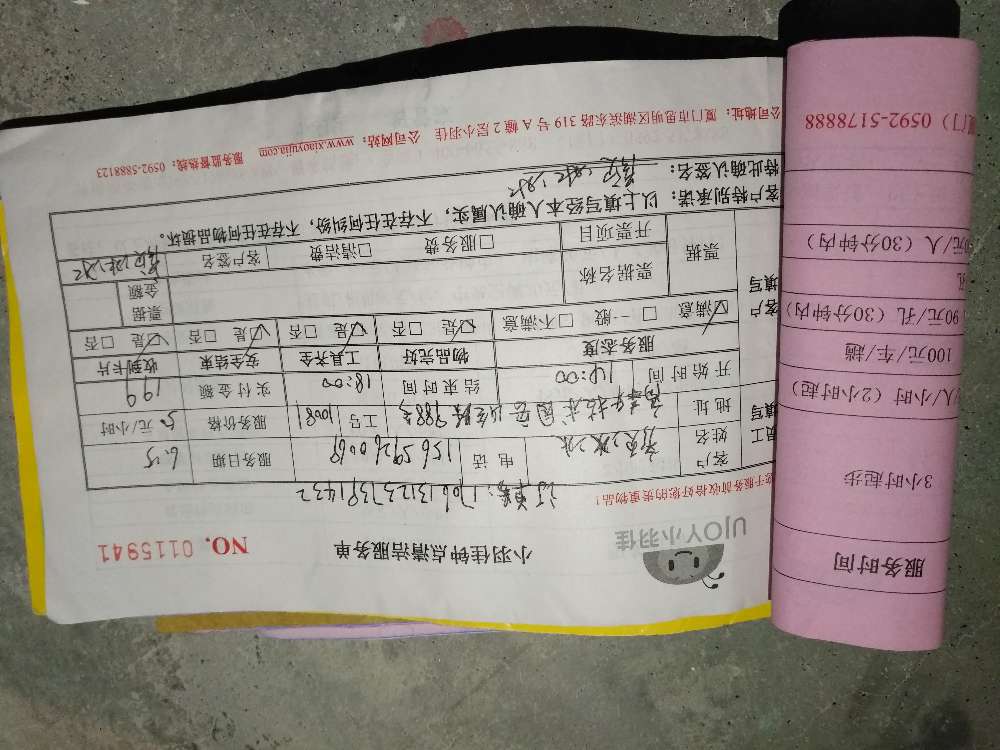 UJOY小羽佳
小羽佳钟点清洁服务单
NO. 0115941
您于服务前收拾好您的贵重物品！
订单号：1706131237391432
客户姓名 电话 15659260069 服务日期 6.15
地址 988号 工号 10081 服务价格 元/小时
开始时间 14:00 结束时间 18:00 实付金额 199
服务态度 物品完好 工具齐全 安全结束 收到卡片
☑满意 □一般 □不满意 ☑是 □否 ☑是 □否 ☑是 □否 ☑是 □否
客户填写
票据 票据名称 票据金额
开票项目 □服务费 □清洁费 客户签名
客户特别承诺：以上填写经本人确认属实，不存在任何纠纷，不存在任何物品损坏。
特此确认签名：
公司地址：厦门市思明区湖滨东路319号A幢2层小羽佳 公司网站：www.xiaoyujia.com 服务监督热线：0592-5888123
服务时间
3小时起步
/人/小时（2小时起）
100元/车/趟
90元/孔（30分钟内）
元/人（30分钟内）
厦门）0592-5178888